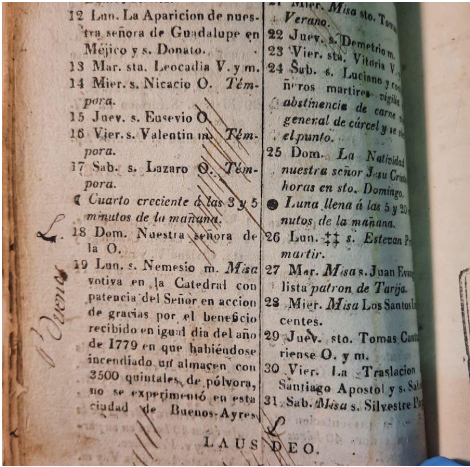 12 Lun. La Aparicion de nues-
tra señora de Guadalupe en
Méjico y s. Donato.
13 Mar. sta. Leocadia V. y m.
14 Mier. s. Nicacio O. Tém-
pora.
15 Juev. s. Eusevio O.
16 Vier. s. Valentin m. Tém-
pora.
17 Sab. s. Lazaro O. Tém-
pora.
Cuarto creciente á las 3 y 5
minutos de la mañana.
18 Dom. Nuestra señora de
la O.
19 Lun. s. Nemesio m. Misa
votiva en la Catedral con
patencia del Señor en accion
de gracias por el beneficio
recibido en igual dia del año
de 1779 en que habiéndose
incendiado un almacen con
3500 quintales de pólvora,
no se experimentó en esta
ciudad de Buenos-Ayres
21 Mier. Misa sto. Tom
Verano.
22 Juev. s. Demetrio m.
23 Vier. sta. Vitoria V.
24 Sab. s. Luciano y
ñeros martires vigilia
abstinencia de carne
general de cárcel y se
el punto.
25 Dom. La Natividad
nuestra señor Jesu Crist
horas en sto. Domingo.
● Luna llena á las 5 y 20
nutos de la mañana.
26 Lun. ‡‡ s. Estevan Pr
martir.
27 Mar. Misa s. Juan Evan
lista patron de Tarija.
28 Mier. Misa Los Santos In
centes.
29 Juev. sto. Tomas Cantu
riense O. y m.
30 Vier. La Traslacion
Santiago Apostol y s. Sab
31 Sab. Misa s. Silvestre
LAUS DEO.